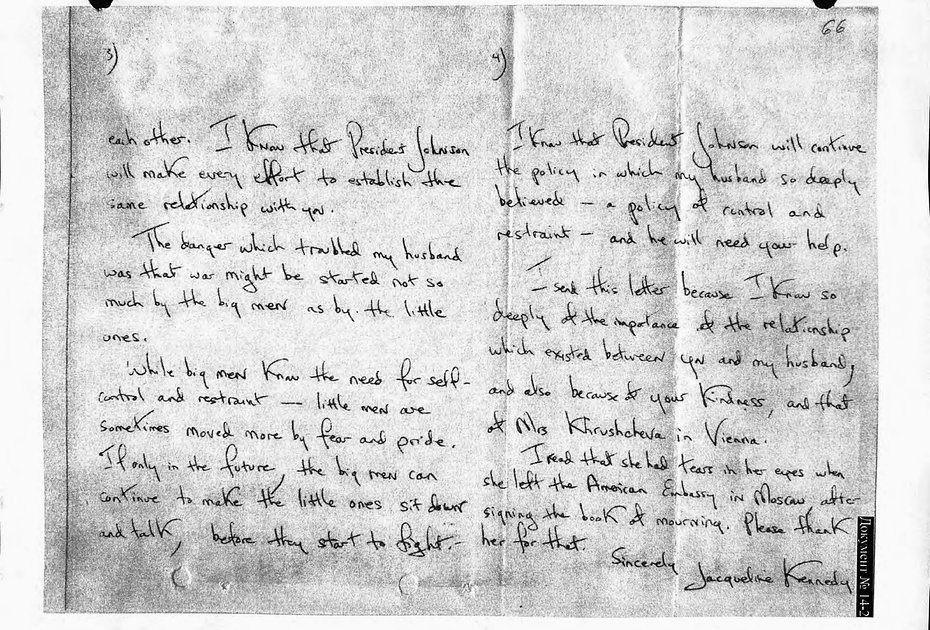 66
3)
each other. I know that President Johnson
will make every effort to establish the
same relationship with you.
The danger which troubled my husband
was that war might be started not so
much by the big men as by the little
ones.
While big men know the need for self-
control and restraint — little men are
sometimes moved more by fear and pride.
If only in the future, the big men can
continue to make the little ones sit down
and talk, before they start to fight.-
4)
I know that President Johnson will continue
the policy in which my husband so deeply
believed — a policy of control and
restraint — and he will need your help.
I send this letter because I know so
deeply of the importance of the relationship
which existed between you and my husband,
and also because of your kindness, and that
of Mrs Khrushcheva in Vienna.
I read that she had tears in her eyes when
she left the American Embassy in Moscow, after
signing the book of mourning. Please thank
her for that.
Sincerely
Jacqueline Kennedy
Документ № 14-2